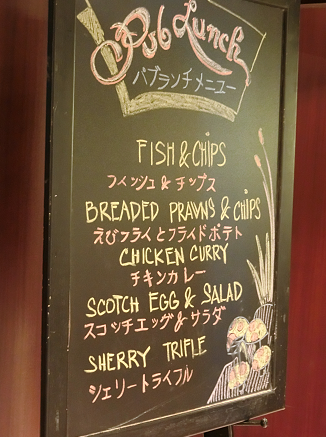 Pub Lunch
パブランチメニュー
FISH & CHIPS
フィッシュ & チップス
BREADED PRAWNS & CHIPS
えびフライとフライドポテト
CHICKEN CURRY
チキンカレー
SCOTCH EGG & SALAD
スコッチエッグ & サラダ
SHERRY TRIFLE
シェリートライフル